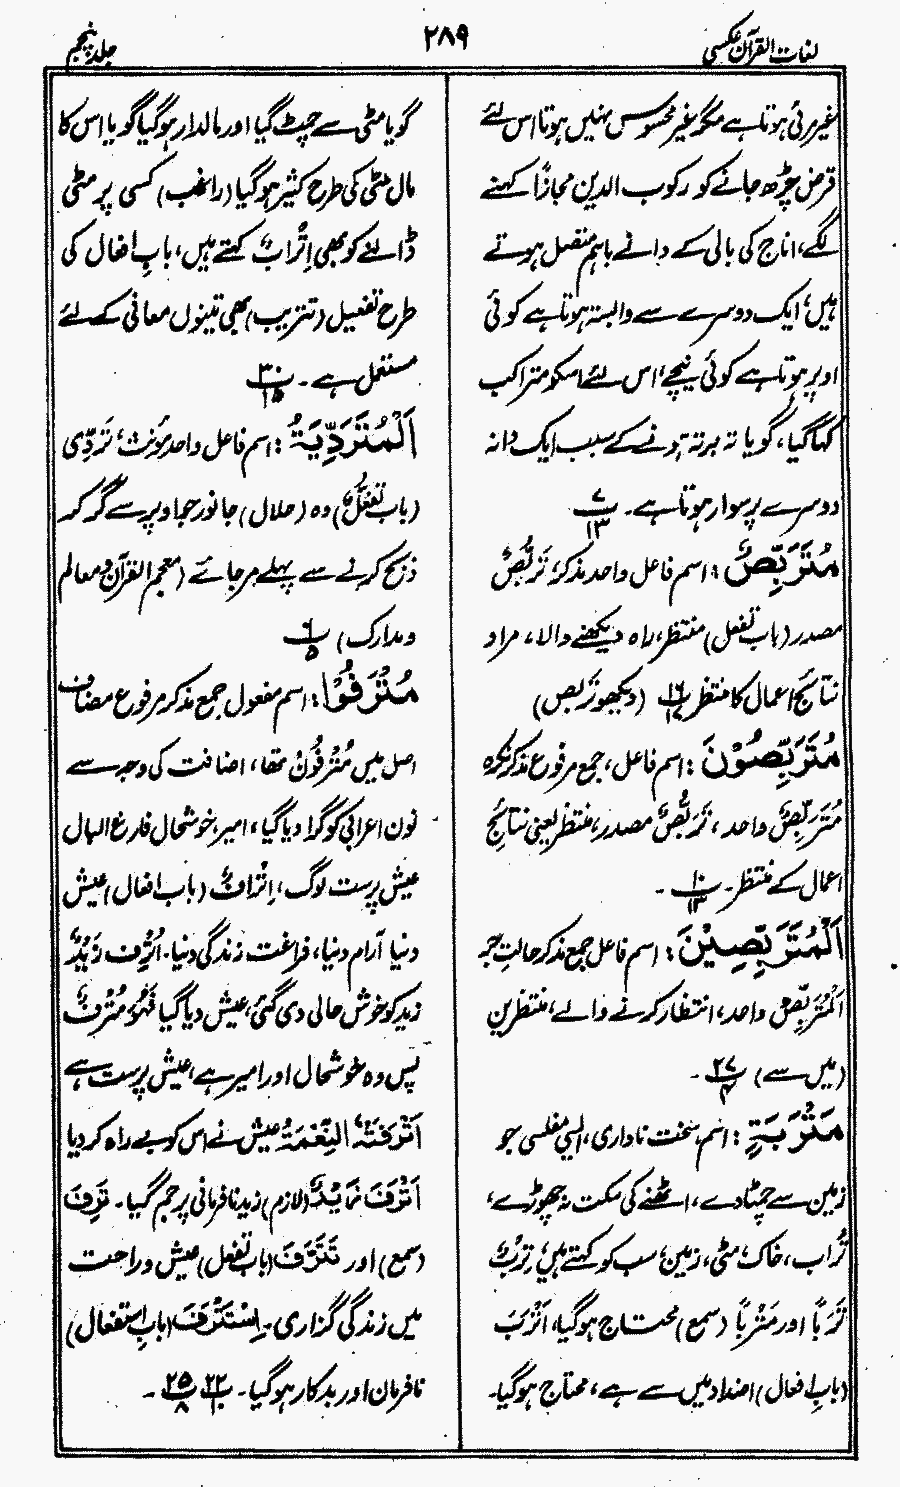 لغات القرآن عکسی
۲۸۹
جلد پنجم
غیر مرئی ہوتا ہے مگر غیر محسوس نہیں ہوتا اس لئے
قرض چڑھ جانے کو رکوب الدین مجازًا کہنے
لگے، اناج کی بالی کے دانے باہم متصل ہوتے
ہیں، ایک دوسرے سے وابستہ ہوتا ہے کوئی
اوپر ہوتا ہے کوئی نیچے، اس لئے اسکو متراکب
کہا گیا، گویا تہ برتہ ہونے کے سبب ایک دانہ
دوسرے پر سوار ہوتا ہے۔ پ ۷ ۱۳
مُتَرَبِّصٌ: اسم فاعل واحد مذکر، تَرَبُّصٌ
مصدر (باب تفعل) منتظر، راہ دیکھنے والا، مراد
نتائج اعمال کا منتظر پ ۱۶ ۱۷ (دیکھو تربص)
مُتَرَبِّصُوْنَ: اسم فاعل، جمع مرفوع مذکر نکرہ
مُتَرَبِّصٌ واحد، تَرَبُّصٌ مصدر، منتظر یعنی نتائج
اعمال کے منتظر۔ پ ۱۰ ۱۳ ۔
اَلْمُتَرَبِّصِیْنَ: اسم فاعل جمع مذکر حالتِ جر
اَلْمُتَرَبِّصُ واحد، انتظار کرنے والے، منتظرین
(میں سے) پ ۲۷ ۴ ۔
مَتْرَبَةٍ: اسم، سخت ناداری، ایسی مفلسی جو
زمین سے چمٹا دے، اٹھنے کی سکت نہ چھوڑے،
تُراب، خاک، مٹی، زمین، سب کو کہتے ہیں، تِرْبٌ
تَرَبًا اور مَتْرَبًا (سمع) محتاج ہو گیا، اَتْرَبَ
(باب افعال) اضداد میں سے ہے، محتاج ہو گیا۔
گویا مٹی سے چمٹ گیا اور مالدار ہو گیا گویا اس کا
مال مٹی کی طرح کثیر ہو گیا (راغب) کسی پر مٹی
ڈالنے کو بھی اِتْرَابٌ کہتے ہیں، بابِ افعال کی
طرح تفعیل (تتریب) بھی تینوں معانی کے لئے
مستعمل ہے۔ پ ۳۰ ۱۵
اَلْمُتَرَدِّيَةُ: اسم فاعل واحد مؤنث، تَرَدِّی
(باب تَفَعُّلٌ) وہ (حلال) جانور جو اوپر سے گر کر
ذبح کرنے سے پہلے مر جائے (معجم القرآن و معالم
و مدارک) پ ۶ ۵
مُتْرَفُوْا: اسم مفعول جمع مذکر مرفوع مضاف
اصل میں مُتْرَفُوْنَ تھا، اضافت کی وجہ سے
نون اعرابی کو گرا دیا گیا، امیر، خوشحال فارغ البال
عیش پرست لوگ، اِتْرَافٌ (باب افعال) عیش
دنیا آرام دنیا، فراغت زندگی دنیا۔ اُتْرِفَ زَیْدٌ
زید کو خوش حالی دی گئی، عیش دیا گیا فَهُوَ مُتْرَفٌ
پس وہ خوشحال اور امیر ہے، عیش پرست ہے
اَتْرَفَتْهُ النِّعْمَةُ عیش نے اس کو بے راہ کر دیا
اَتْرَفَ زَیْدٌ (لازم) زید نافرمانی پر جم گیا۔ تَرِفَ
(سمع) اور تَتَرَّفَ (باب تفعل) عیش و راحت
میں زندگی گزاری۔ اِسْتَتْرَفَ (باب استفعال)
نافرمان اور بدکار ہو گیا۔ پ ۲۲ ۱۰ پ ۲۵ ۸ ۔